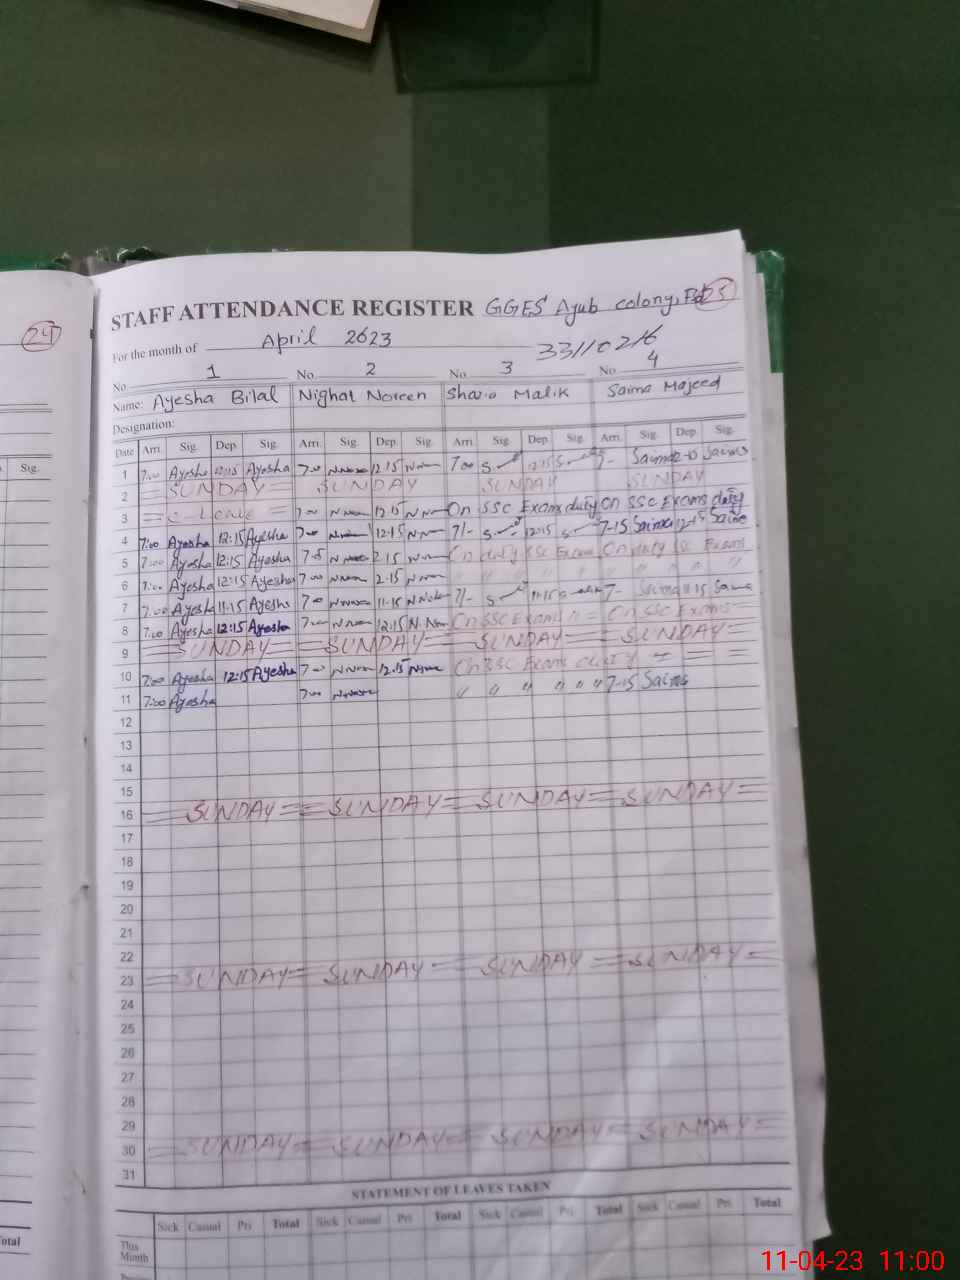 24
25
STAFF ATTENDANCE REGISTER GGES Ayub colony,
For the month of April 2023 33110216
No. 1 No. 2 No. 3 No. 4
Name: Ayesha Bilal Nighat Noreen Malik Saima Majeed
Designation:
Date Arri. Sig. Dep. Sig. Arri. Sig. Dep. Sig. Arri. Sig. Dep. Sig. Arri. Sig. Dep. Sig.
Sig.
1 7:00 Ayesha 12:15 Ayesha 7:00 12:15 700 S 12:15 S 7- Saima Saima
2 SUNDAY SUNDAY SUNDAY SUNDAY
3 C-Leave 12:15 On SSC Exams duty On SSC Exams duty
4 7:00 Ayesha 12:15 Ayesha 12:15 7/- S 12:15 S 7-15 Saima 12-15 Saima
5 7:00 Ayesha 12:15 Ayesha 2.15 On duty SSC Exam On duty SSC Exam
6 7:00 Ayesha 12:15 Ayesha 7:00 2.15 " " " " " " " "
7 7:00 Ayesha 11.15 Ayesha 7:00 11.15 7/- S 11.15 7- Saima 11.15 Saima
8 7:00 Ayesha 12:15 Ayesha 12.15 On SSC Exams On SSC Exams
9 SUNDAY SUNDAY SUNDAY SUNDAY
10 7:00 Ayesha 12:15 Ayesha 12.15 On SSC Exams duty
11 7:00 Ayesha 7:00 " " " " " " 7-15 Saima
12
13
14
15
16 SUNDAY SUNDAY SUNDAY SUNDAY
17
18
19
20
21
22
23 SUNDAY SUNDAY SUNDAY SUNDAY
24
25
26
27
28
29
30 SUNDAY SUNDAY SUNDAY SUNDAY
31
STATEMENT OF LEAVES TAKEN
Sick Casual Pri Total Sick Casual Pri Total Sick Casual Pri Total Sick Casual Pri Total
This
Month
11-04-23 11:00